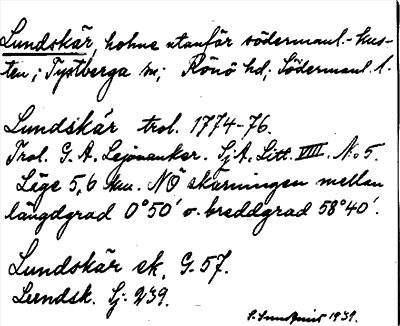 Lundskär, holme utanför södermanl.-kus-
ten; Tystberga sn; Rönö hd; Södermanl. l.
Lundskär trol. 1774-76.
Trol. G. A. Lejonanker. SjA. Litt. VIII. No 5.
Läge 5,6 km. NÖ skärningen mellan
längdgrad 0°50' o. breddgrad 58°40'.
Lundskär ek. G-57.
Lundsk. Sj: 239.
1939.